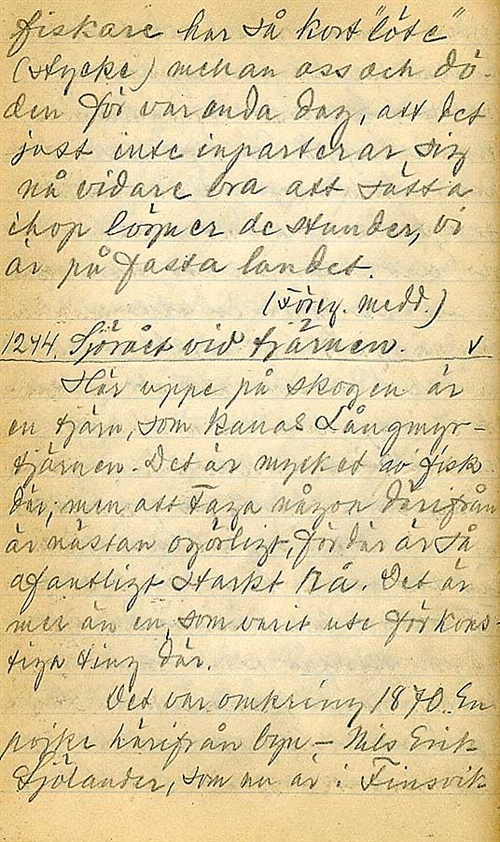 fiskare har så kort "löte"
(stycke) mellan oss och dö-
den för varenda dag, att det
just inte inparterar sig
nå vidare bra att sätta
ihop lögner de stunder, vi
är på fasta landet.
(Föreg. medd.)
1244. Sjörået vid tjärnen. v
Här uppe på skogen är
en tjärn, som kanas Långmyr-
tjärnen. Det är mycket av fisk
där, men att taga någon därifrån
är nästan ogörligt, för där är så
afantligt starkt rå. Det är
mer än en, som varit ute för kons-
tiga ting där.
Det var omkring 1870. En
pojke härifrån byn – Nils Erik
Sjölander, som nu är i Finsvik